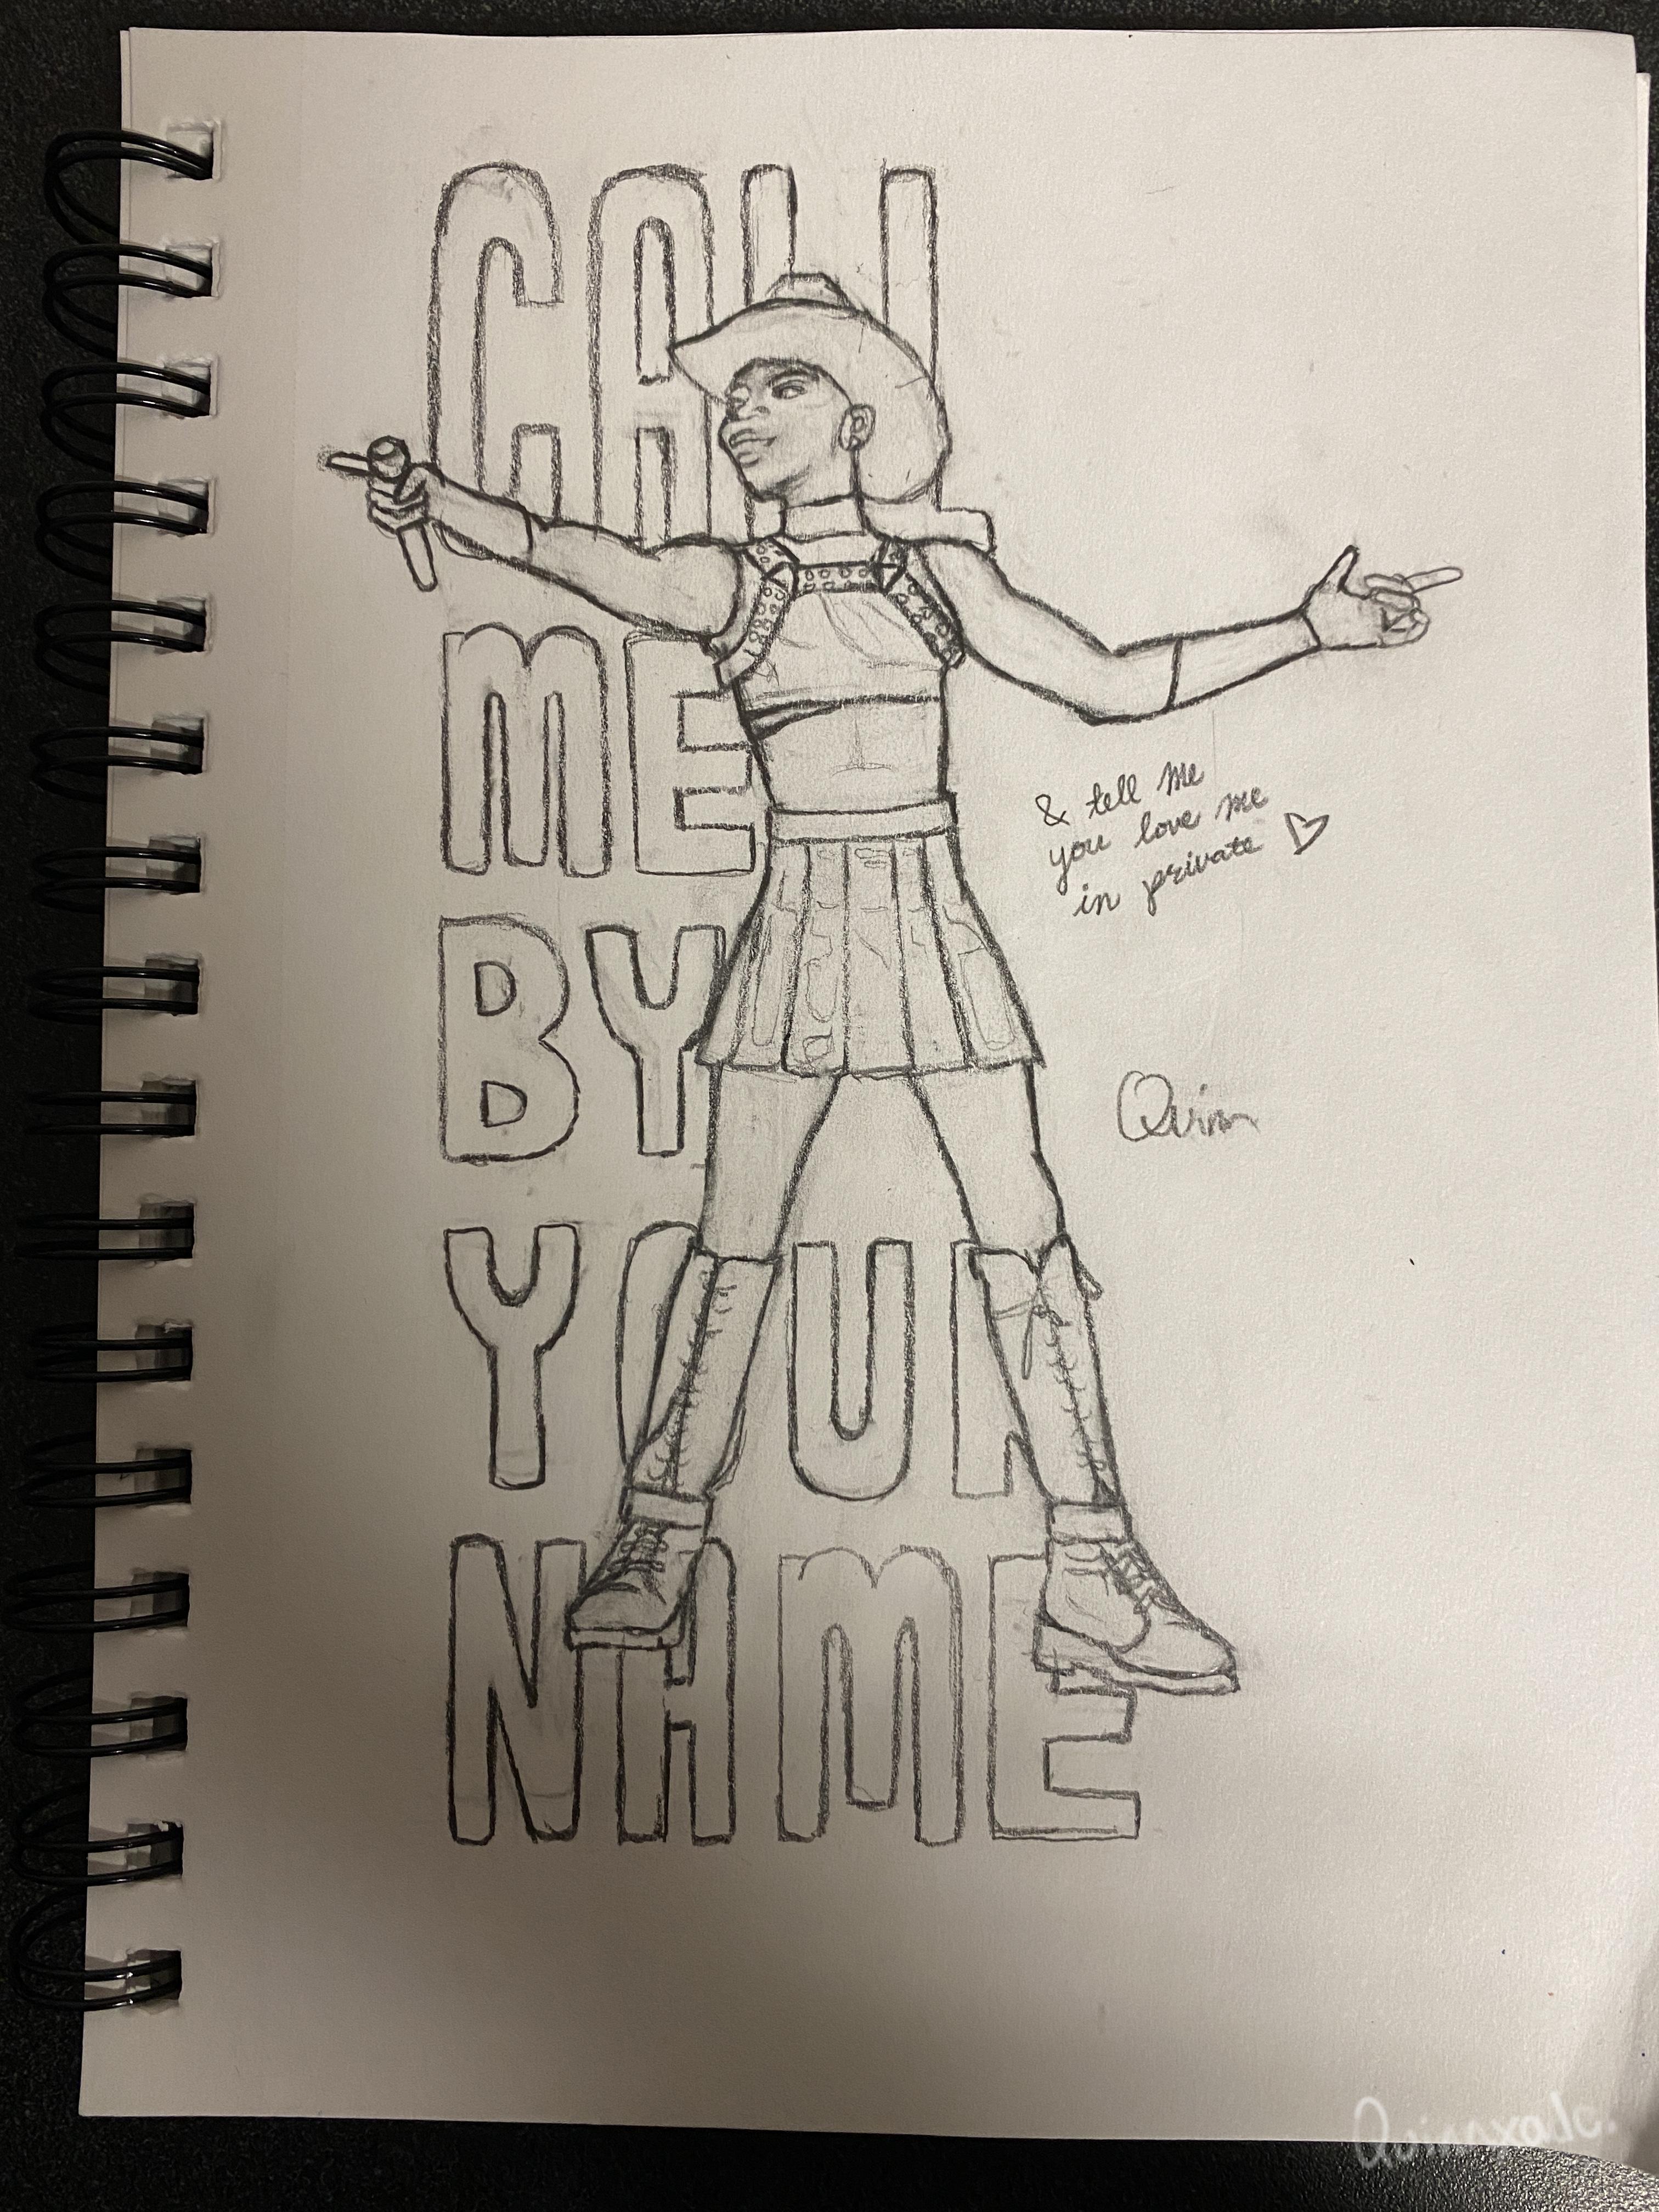 CALL
ME
BY
YOUR
NAME
& tell me
you love me
in private
Quinn